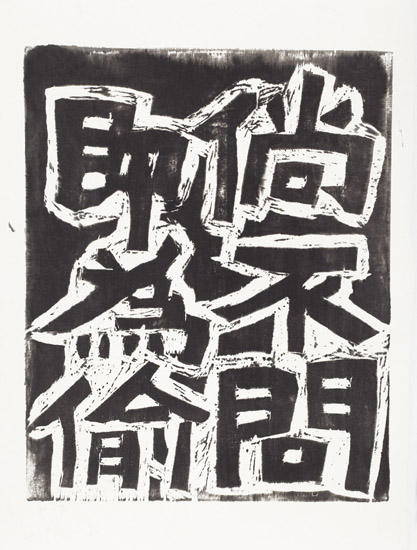 倘不問
即為偷